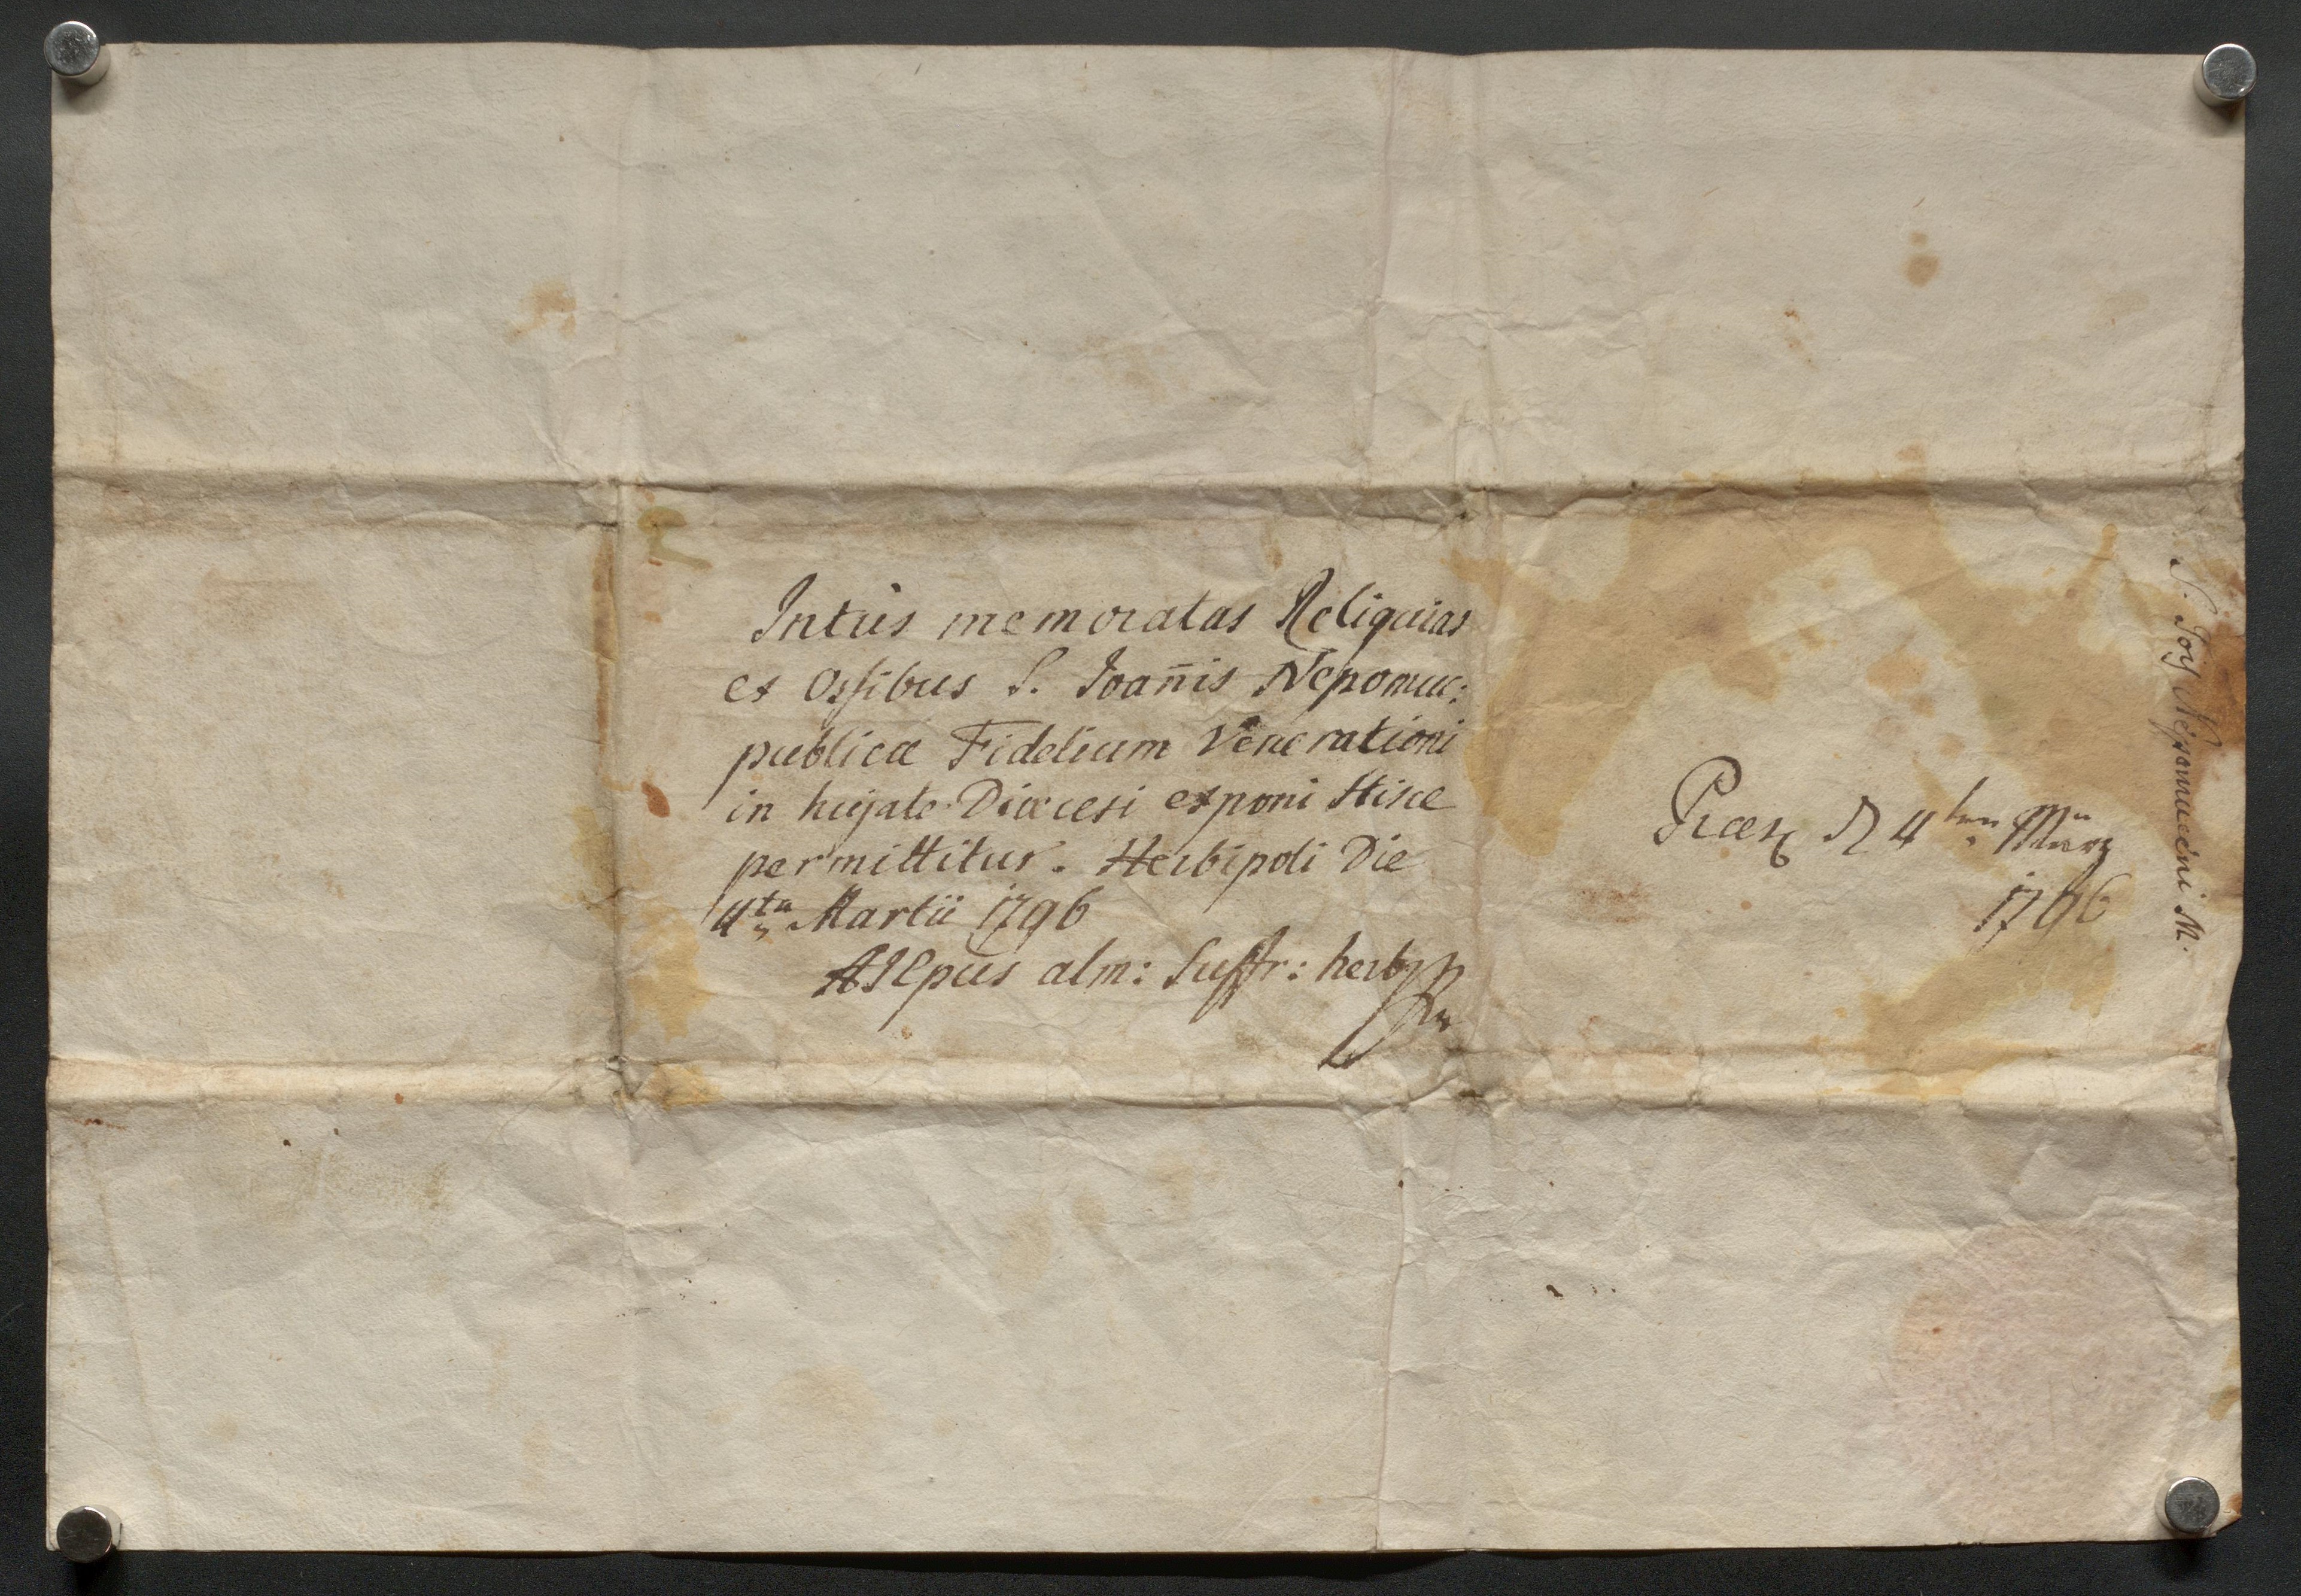 Intus memoratas Reliquias
ex Ossibus S. Joan̄is Nepomuc:
publicæ Fidelium Venerationi
in hujate Diœcesi exponi Hisce
permittitur. Herbipoli Die
4ta Martii 1796
Præs 4ten März
1796
S. Jois Nepomuceni M.
alm: Suffr: herb